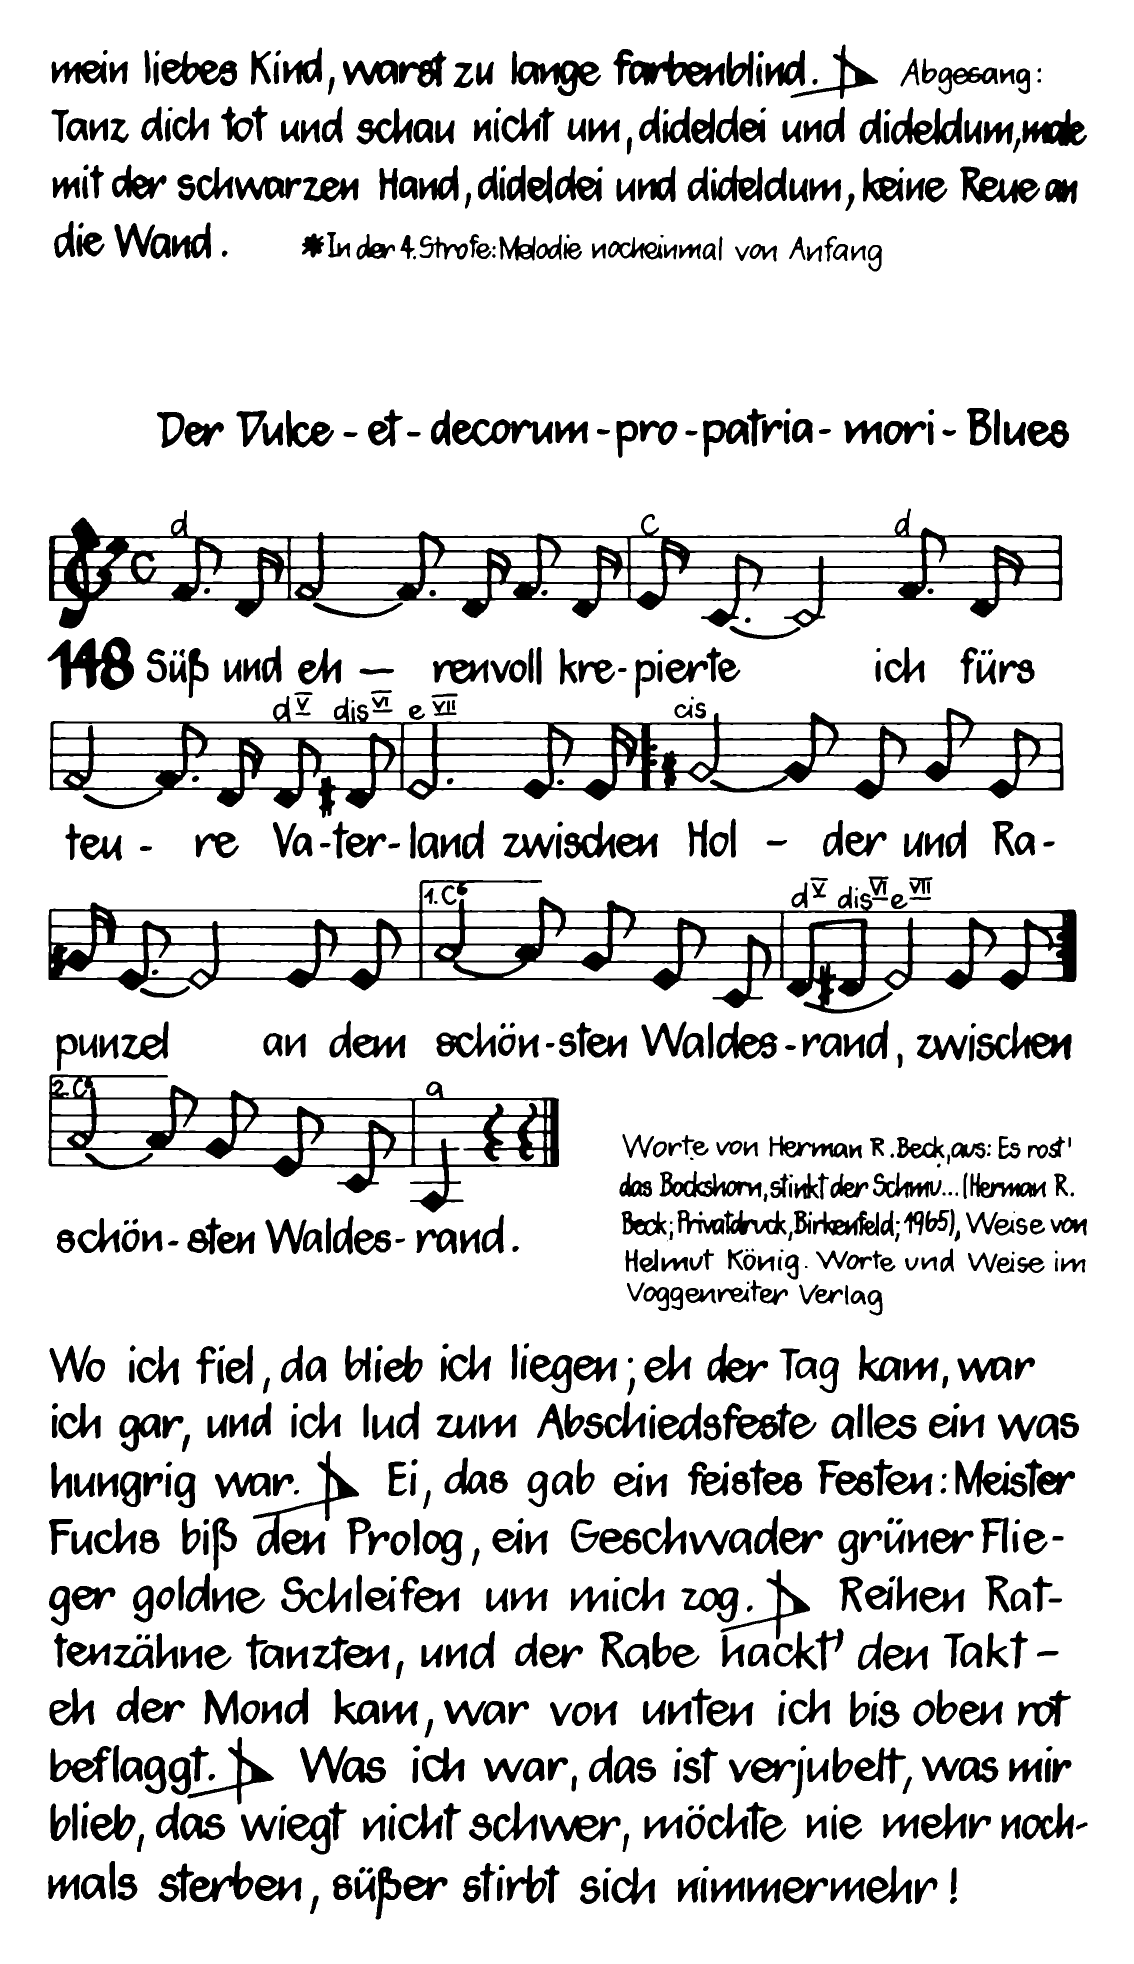 mein liebes Kind, warst zu lange farbenblind. Abgesang:
Tanz dich tot und schau nicht um, dideldei und dideldum, male
mit der schwarzen Hand, dideldei und dideldum, keine Reue an
die Wand. *In der 4. Strofe: Melodie nocheinmal von Anfang
Der Dulce-et-decorum-pro-patria-mori-Blues
d C d
148 Süß und eh — renvoll kre-pierte ich fürs
d V dis VI e VII cis
teu - re Va-ter-land zwischen Hol - der und Ra-
1. C6 d V dis VI e VII
punzel an dem schön-sten Waldes-rand, zwischen
2. C6 a
schön-sten Waldes-rand.
Worte von Herman R. Beck, aus: Es rost'
das Bockshorn, stinkt der Schmu... (Herman R.
Beck; Privatdruck, Birkenfeld; 1965), Weise von
Helmut König. Worte und Weise im
Voggenreiter Verlag
Wo ich fiel, da blieb ich liegen; eh der Tag kam, war
ich gar, und ich lud zum Abschiedsfeste alles ein was
hungrig war. Ei, das gab ein feistes Festen: Meister
Fuchs biß den Prolog, ein Geschwader grüner Flie-
ger goldne Schleifen um mich zog. Reihen Rat-
tenzähne tanzten, und der Rabe hackt' den Takt –
eh der Mond kam, war von unten ich bis oben rot
beflaggt. Was ich war, das ist verjubelt, was mir
blieb, das wiegt nicht schwer, möchte nie mehr noch-
mals sterben, süßer stirbt sich nimmermehr!